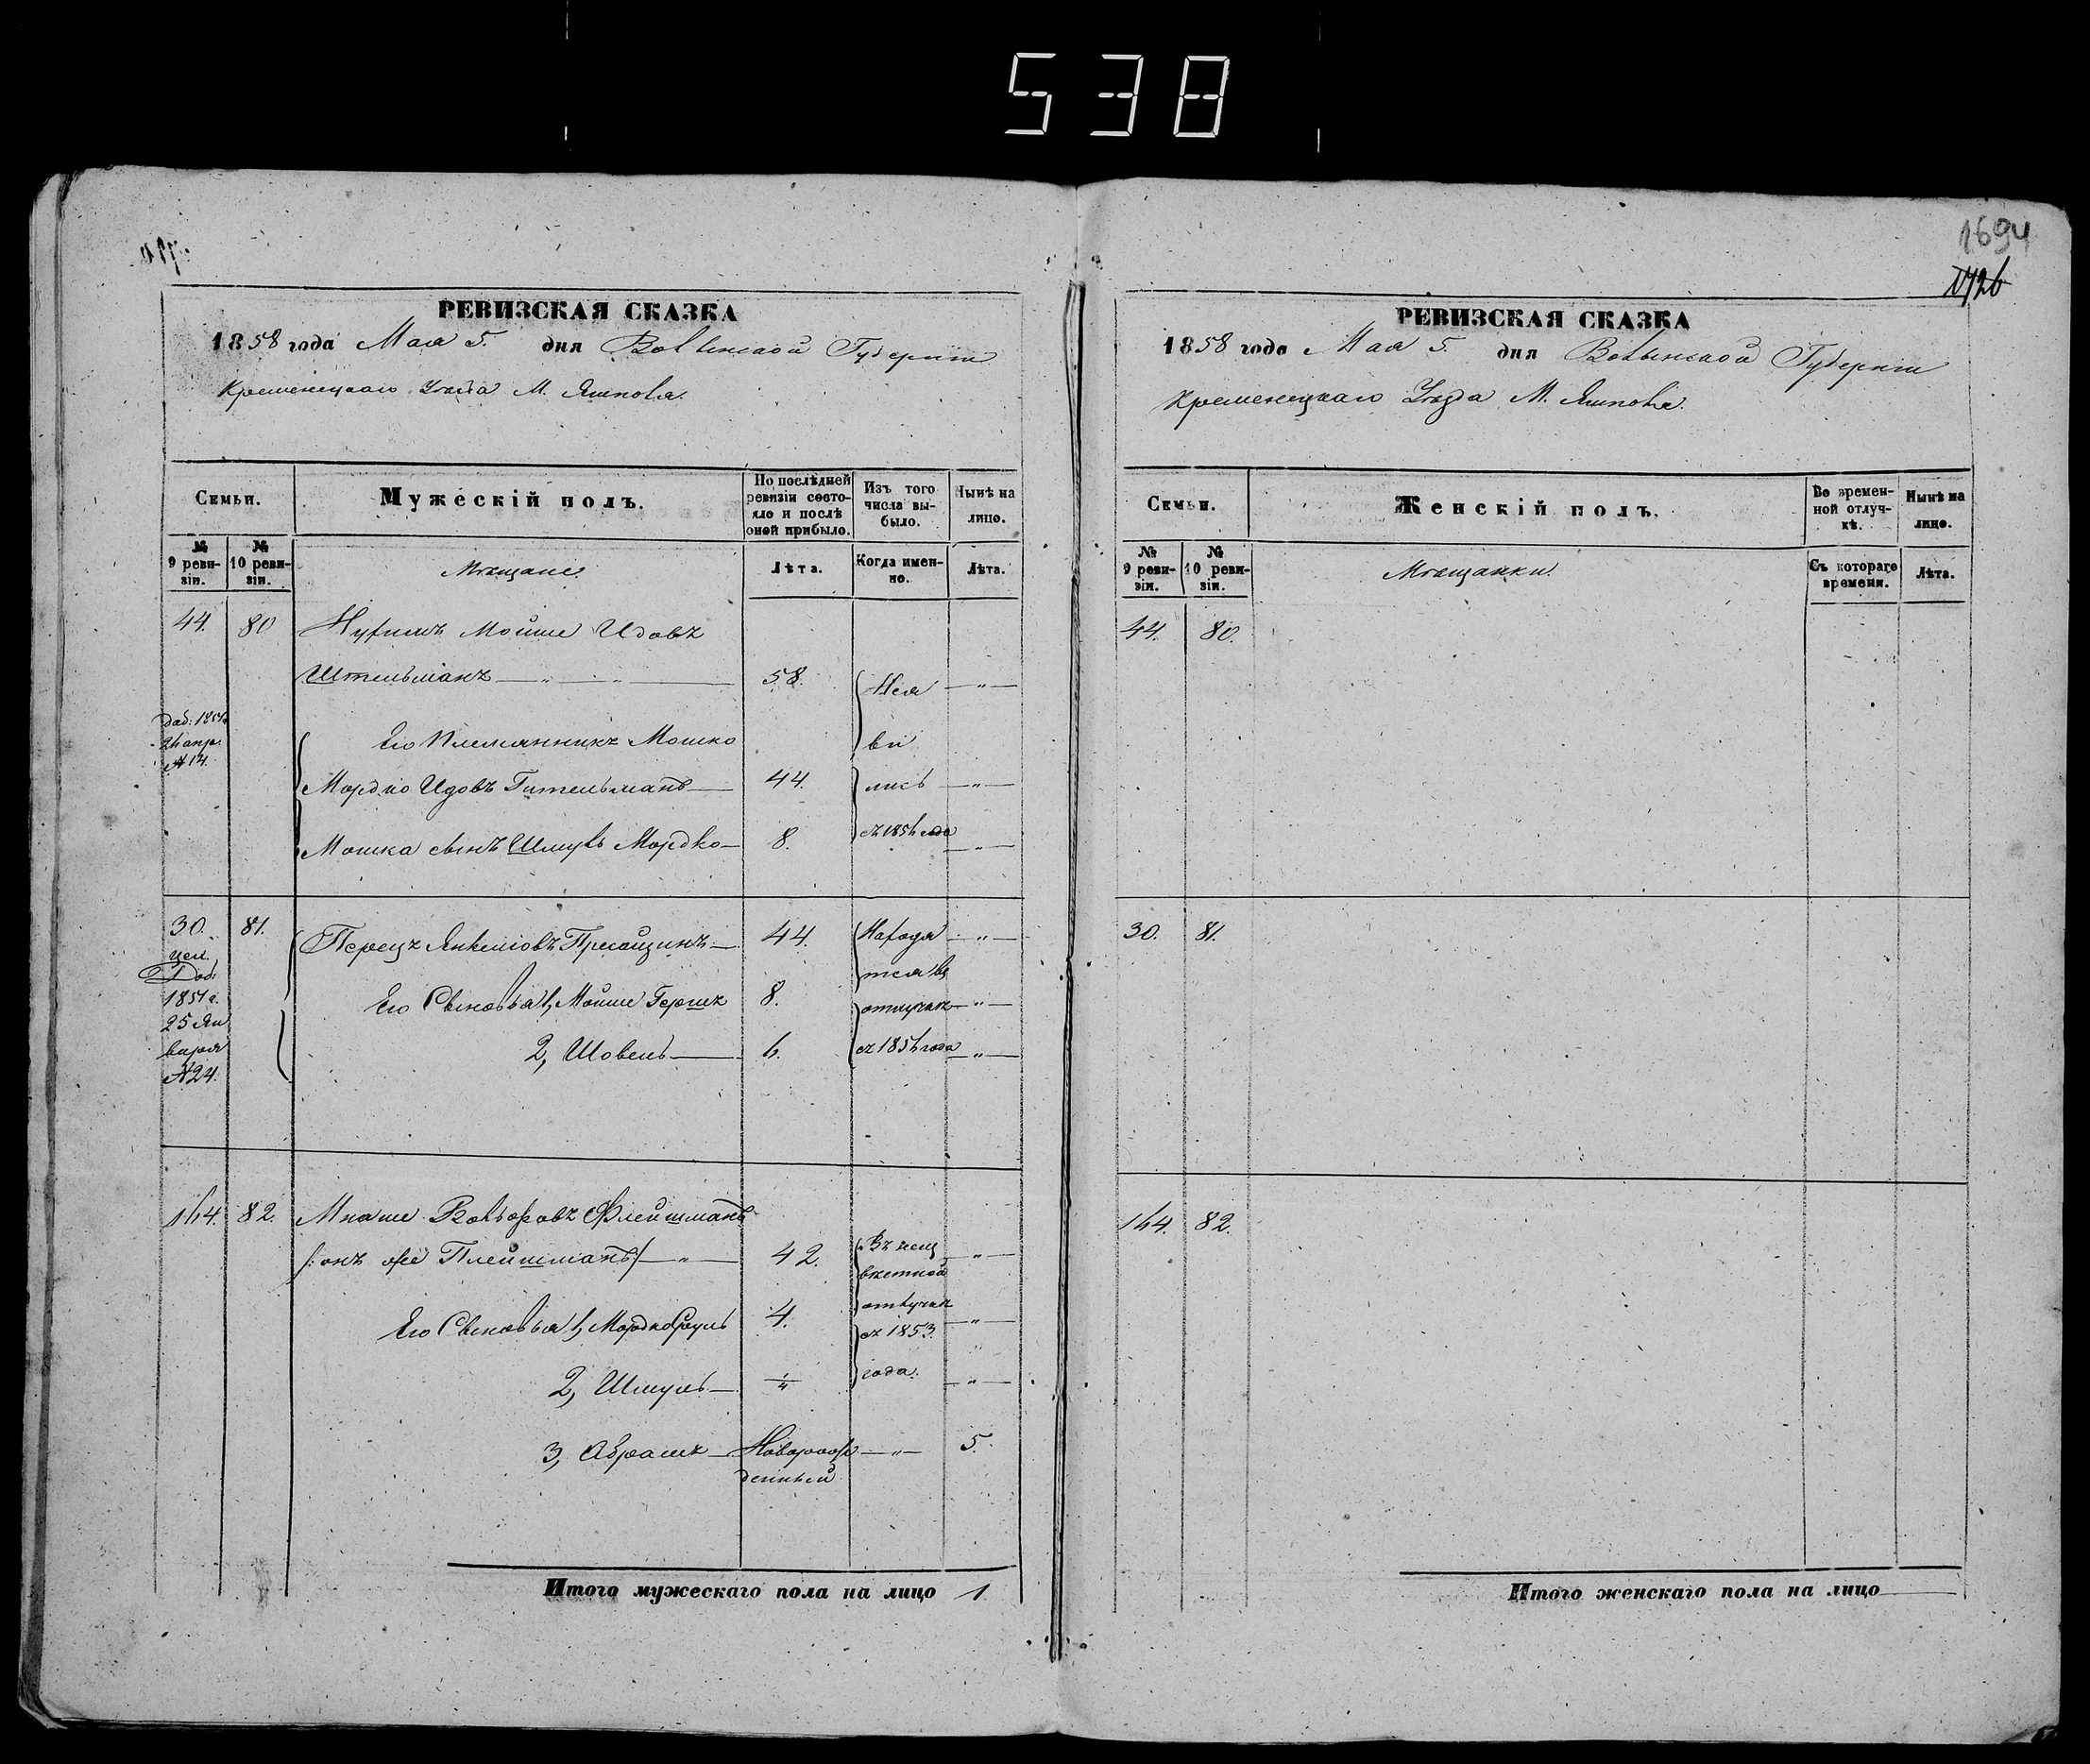 538
1694
1726
РЕВИЗСКАЯ СКАЗКА
1858 года Мая 5. дня Волынской Губерніи
Кременецкаго Уѣзда М. Ямполя.
Семьи.
Мужескій полъ.
По послѣдней ревизіи состояло и послѣ оной прибыло.
Изъ того числа выбыло.
Нынѣ на лицо.
№ 9 ревизіи.
№ 10 ревизіи.
Мѣщане.
Лѣта.
Когда именно.
Лѣта.
44. 80 Мойше Идовъ
Штельманъ — „ — „ — 58. Нея — „ —
доб: 1851
апр.
№ 14.
Его Племянникъ Мошко ви
Мордко Идовъ Гительманъ — 44. лись — „ —
Мошка сынъ Шмуль Мордко — 8. съ 185 года — „ —
30. 81. Перецъ Янкелювъ — 44. Находя — „ —
Доб:
1851 г.
25 Ян
варя
№ 24.
тся въ
Его Сыновья 1, Мойше Гершк 8. отлучкѣ — „ —
2, Шовель — 6. съ 185 года — „ —
164. 82. Мнаше Вольфовъ Флейшманъ
/: онъ же Плейшманъ :/ — „ — 42. Въ неиз — „ —
вѣстной
отлучкѣ
Его Сыновья 1, Мордко Сруль 4. съ 1853. — „ —
2, Шмуль — года. — „ —
3, Абрамъ — Новорож — „ — 5.
денный
Итого мужескаго пола на лицо 1.
РЕВИЗСКАЯ СКАЗКА
1858 года Мая 5. дня Волынской Губерніи
Кременецкаго Уѣзда М. Ямполя.
Семьи.
Женскій полъ.
Во временной отлучкѣ.
Нынѣ на лицо.
№ 9 ревизіи.
№ 10 ревизіи.
Мѣщанки.
Съ котораго времени.
Лѣта.
44. 80.
30. 81.
164. 82.
Итого женскаго пола на лицо